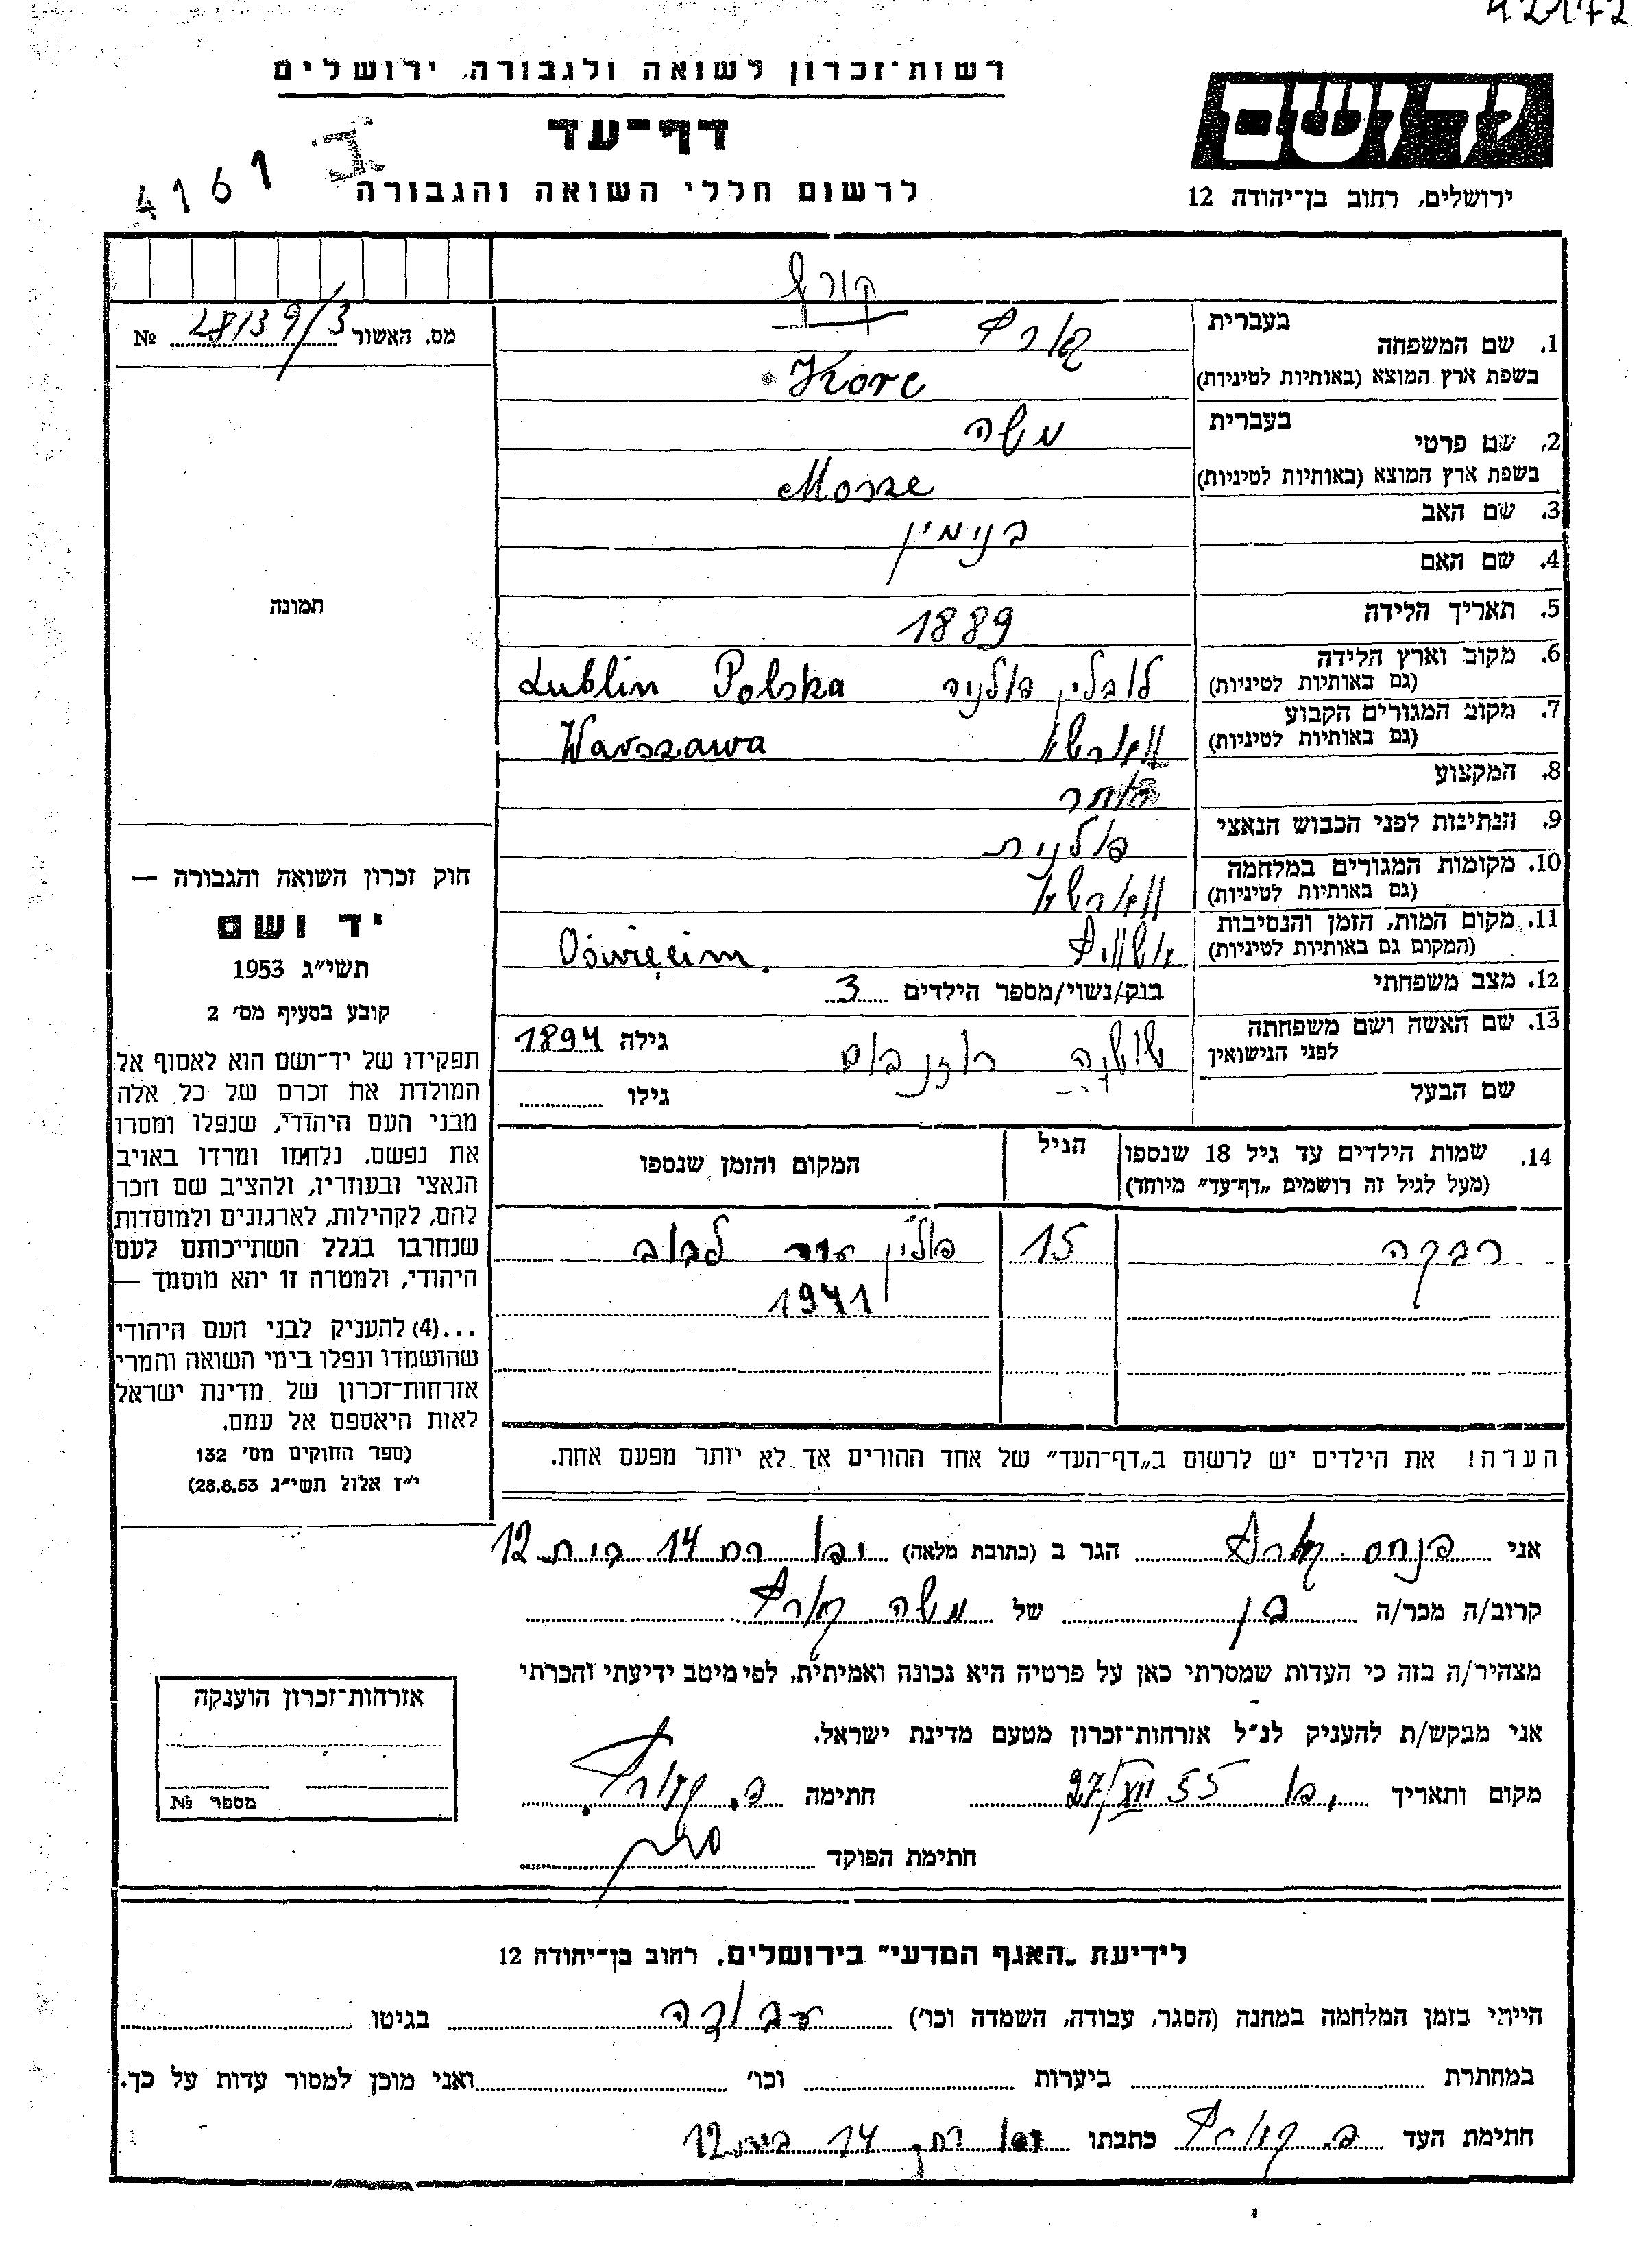 42172
רשות־זכרון לשואה ולגבורה, ירושלים
דף־עד
לרשום חללי השואה והגבורה
ב 4161
יד ושם
ירושלים, רחוב בן־יהודה 12
קורץ
מס. האשור 28139/3 №
תמונה
חוק זכרון השואה והגבורה —
יד ושם
תשי״ג 1953
קובע בסעיף מס׳ 2
תפקידו של יד־ושם הוא לאסוף אל
המולדת את זכרם של כל אלה
מבני העם היהודי, שנפלו ומסרו
את נפשם, נלחמו ומרדו באויב
הנאצי ובעוזריו, ולהציב שם וזכר
להם, לקהילות, לארגונים ולמוסדות
שנחרבו בגלל השתייכותם לעם
היהודי, ולמטרה זו יהא מוסמך —
...(4) להעניק לבני העם היהודי
שהושמדו ונפלו בימי השואה והמרי
אזרחות־זכרון של מדינת ישראל
לאות היאספם אל עמם.
(ספר החוקים מס׳ 132
י״ז אלול תשי״ג 28.8.53)
1. שם המשפחה בעברית קארץ
בשפת ארץ המוצא (באותיות לטיניות) Korc
2. שם פרטי בעברית משה
בשפת ארץ המוצא (באותיות לטיניות) Mosze
3. שם האב בנימין
4. שם האם
5. תאריך הלידה 1889
6. מקום וארץ הלידה (גם באותיות לטיניות) לובלין פולניה Lublin Polska
7. מקום המגורים הקבוע (גם באותיות לטיניות) ווארשא Warszawa
8. המקצוע סוחר
9. הנתינות לפני הכבוש הנאצי פולנית
10. מקומות המגורים במלחמה (גם באותיות לטיניות) ווארשא
11. מקום המות, הזמן והנסיבות (המקום גם באותיות לטיניות) אושוויץ Oświęcim.
12. מצב משפחתי רווק/נשוי/מספר הילדים 3
13. שם האשה ושם משפחתה לפני הנישואין שושנה רוזנבוים גילה 1894
שם הבעל גילו
14. שמות הילדים עד גיל 18 שנספו הגיל המקום והזמן שנספו
(מעל לגיל זה רושמים „דף־עד״ מיוחד)
רבקה 15 פולין עיר לבוב
1941
הערה! את הילדים יש לרשום ב„דף־העד״ של אחד ההורים אך לא יותר מפעם אחת.
אני פנחס קארץ הגר ב (כתובת מלאה) יפו רח 14 בית 12
קרוב/ה מכר/ה בן של משה קארץ
מצהיר/ה בזה כי העדות שמסרתי כאן על פרטיה היא נכונה ואמיתית, לפי מיטב ידיעתי והכרתי
אני מבקש/ת להעניק לנ״ל אזרחות־זכרון מטעם מדינת ישראל.
מקום ותאריך יפו 27/VII 55 חתימה פ. קארץ
חתימת הפוקד
אזרחות־זכרון הוענקה
מספר №
לידיעת „האגף המדעי״ בירושלים, רחוב בן־יהודה 12
הייתי בזמן המלחמה במחנה (הסגר, עבודה, השמדה וכו׳) עבודה בגיטו
במחתרת ביערות וכו׳ ואני מוכן למסור עדות על כך.
חתימת העד פ. קארץ כתבתו יפו רח 14 בית 12